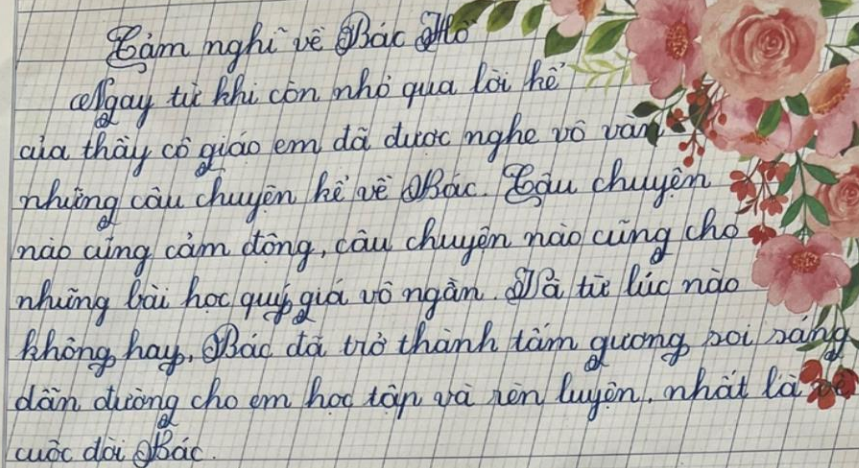 Cảm nghĩ về Bác Hồ
Ngay từ khi còn nhỏ qua lời kể
của thầy cô giáo em đã được nghe vô vàn
những câu chuyện kể về Bác. Câu chuyện
nào cũng cảm động, câu chuyện nào cũng cho
những bài học quý giá vô ngần. Và từ lúc nào
không hay, Bác đã trở thành tấm gương soi sáng
dẫn đường cho em học tập và rèn luyện, nhất là về
cuộc đời Bác.